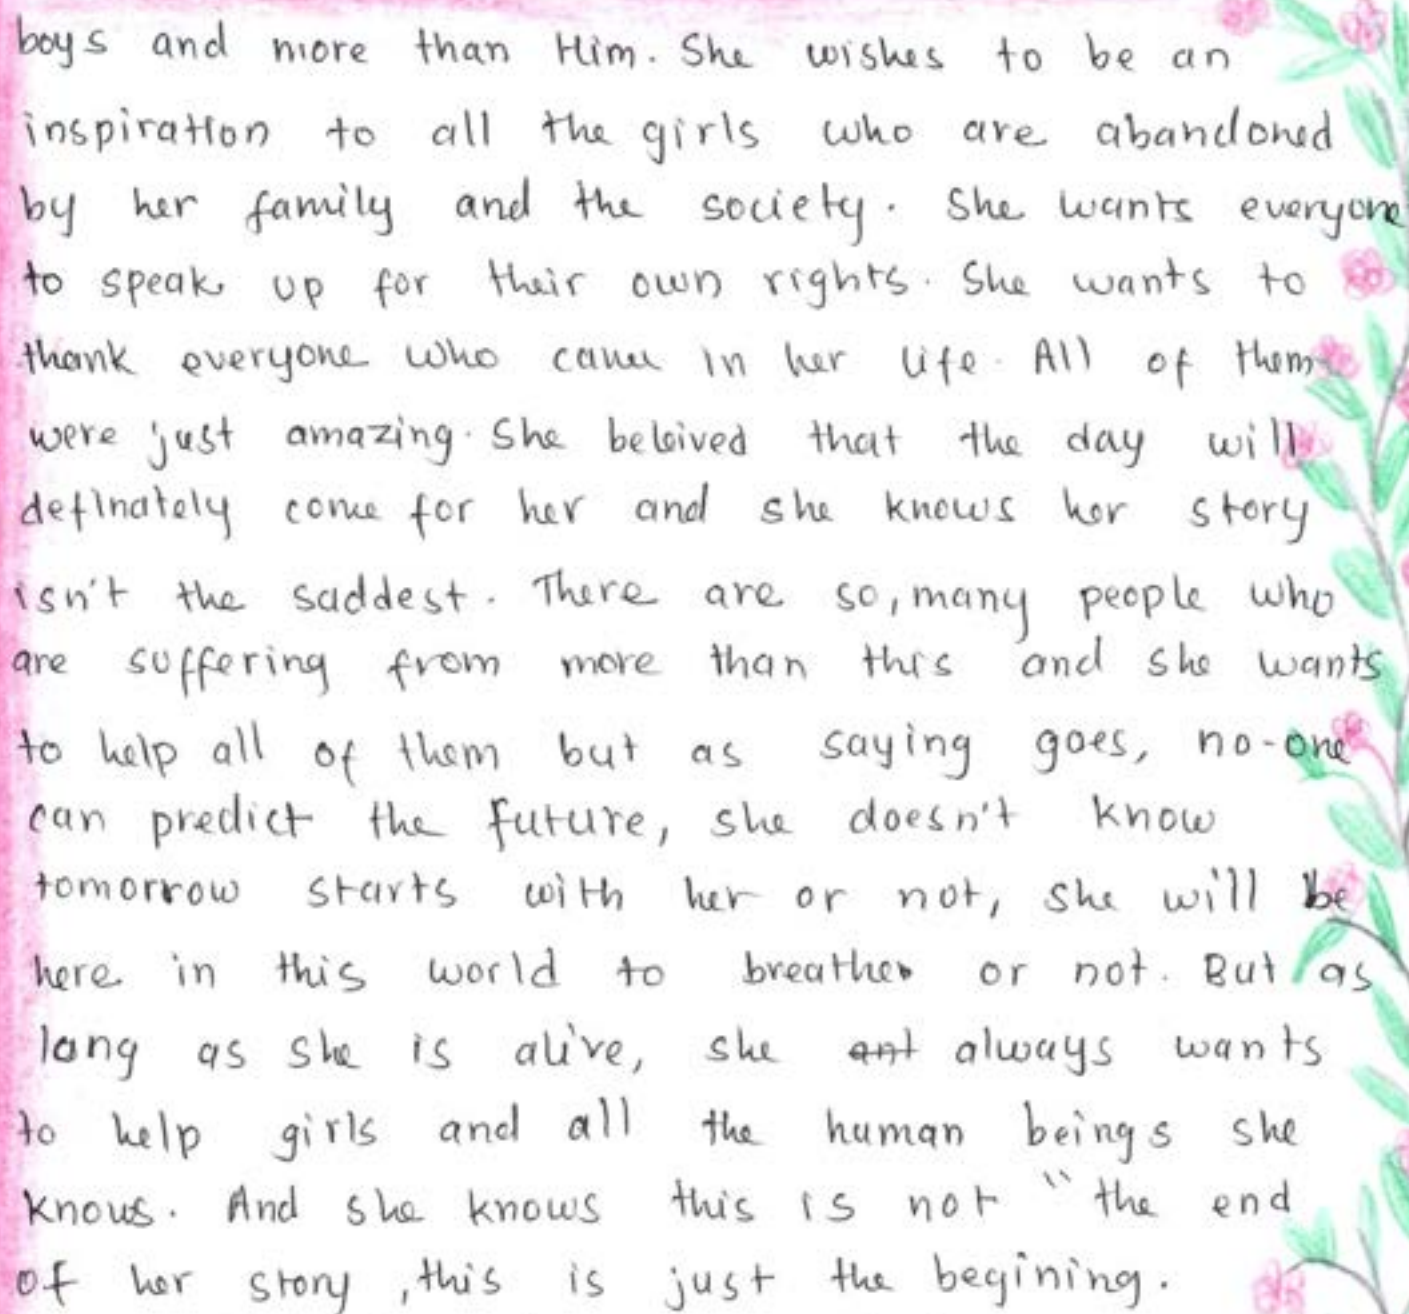 boys and more than Him. She wishes to be an
inspiration to all the girls who are abandoned
by her family and the society. She wants everyone
to speak up for their own rights. She wants to
thank everyone who came in her life. All of them
were just amazing. She beleived that the day will
definately come for her and she knows her story
isn't the saddest. There are so, many people who
are suffering from more than this and she wants
to help all of them but as saying goes, no-one
can predict the future, she doesn't know
tomorrow starts with her or not, she will be
here in this world to breathe or not. But as
long as she is alive, she ant always wants
to help girls and all the human beings she
knows. And she knows this is not "the end
of her story, this is just the begining.